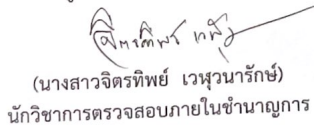 จิตรทิพย์ เวฬุ
(นางสาวจิตรทิพย์ เวฬุวนารักษ์)
นักวิชาการตรวจสอบภายในชำนาญการ